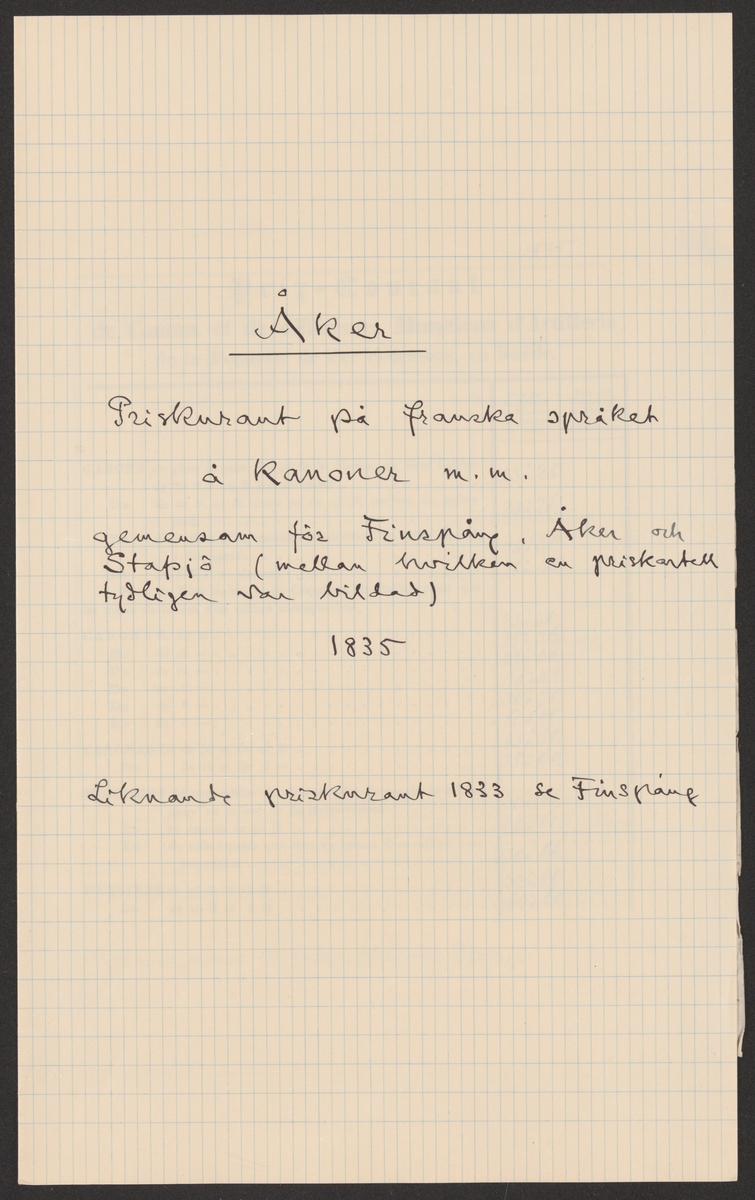 Åker
Priskurant på franska språket
å Kanoner m.m.
gemensam för Finspång, Åker och
Stafsjö (mellan hvilken en priskartell
tydligen var bildad)
1835
Liknande priskurant 1833 se Finspång